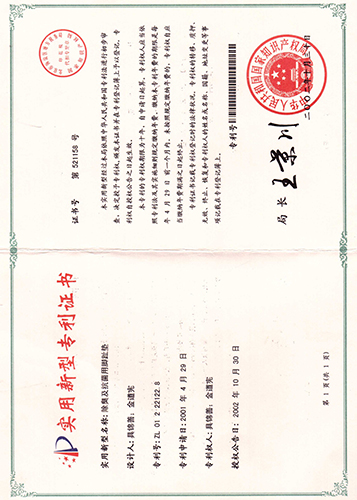 实用新型专利证书
实用新型名称: 除臭及抗菌用脚趾垫
设计人: 具锦善; 金道宪
专利号: ZL 01 2 22122.8
专利申请日: 2001 年 4 月 29 日
专利权人: 具锦善; 金道宪
授权公告日: 2002 年 10 月 30 日
第 1 页(共 1 页)
证书号 第 521158 号
本实用新型经过本局依照中华人民共和国专利法进行初步审
查, 决定授予专利权, 颁发本证书并在专利登记簿上予以登记。专
利权自授权公告之日起生效。
本专利的专利权期限为十年, 自申请日起算。专利权人应当依
照专利法及其实施细则规定缴纳年费。缴纳本专利年费的期限是每
年 4 月 29 日前一个月内。未按照规定缴纳年费的, 专利权自应
当缴纳年费期满之日起终止。
专利证书记载专利权登记时的法律状况。专利权的转移、质押、
无效、终止、恢复和专利权人的姓名或名称、国籍、地址变更等事
项记载在专利登记簿上。
专利号
局长 王景川
中华人民共和国国家知识产权局